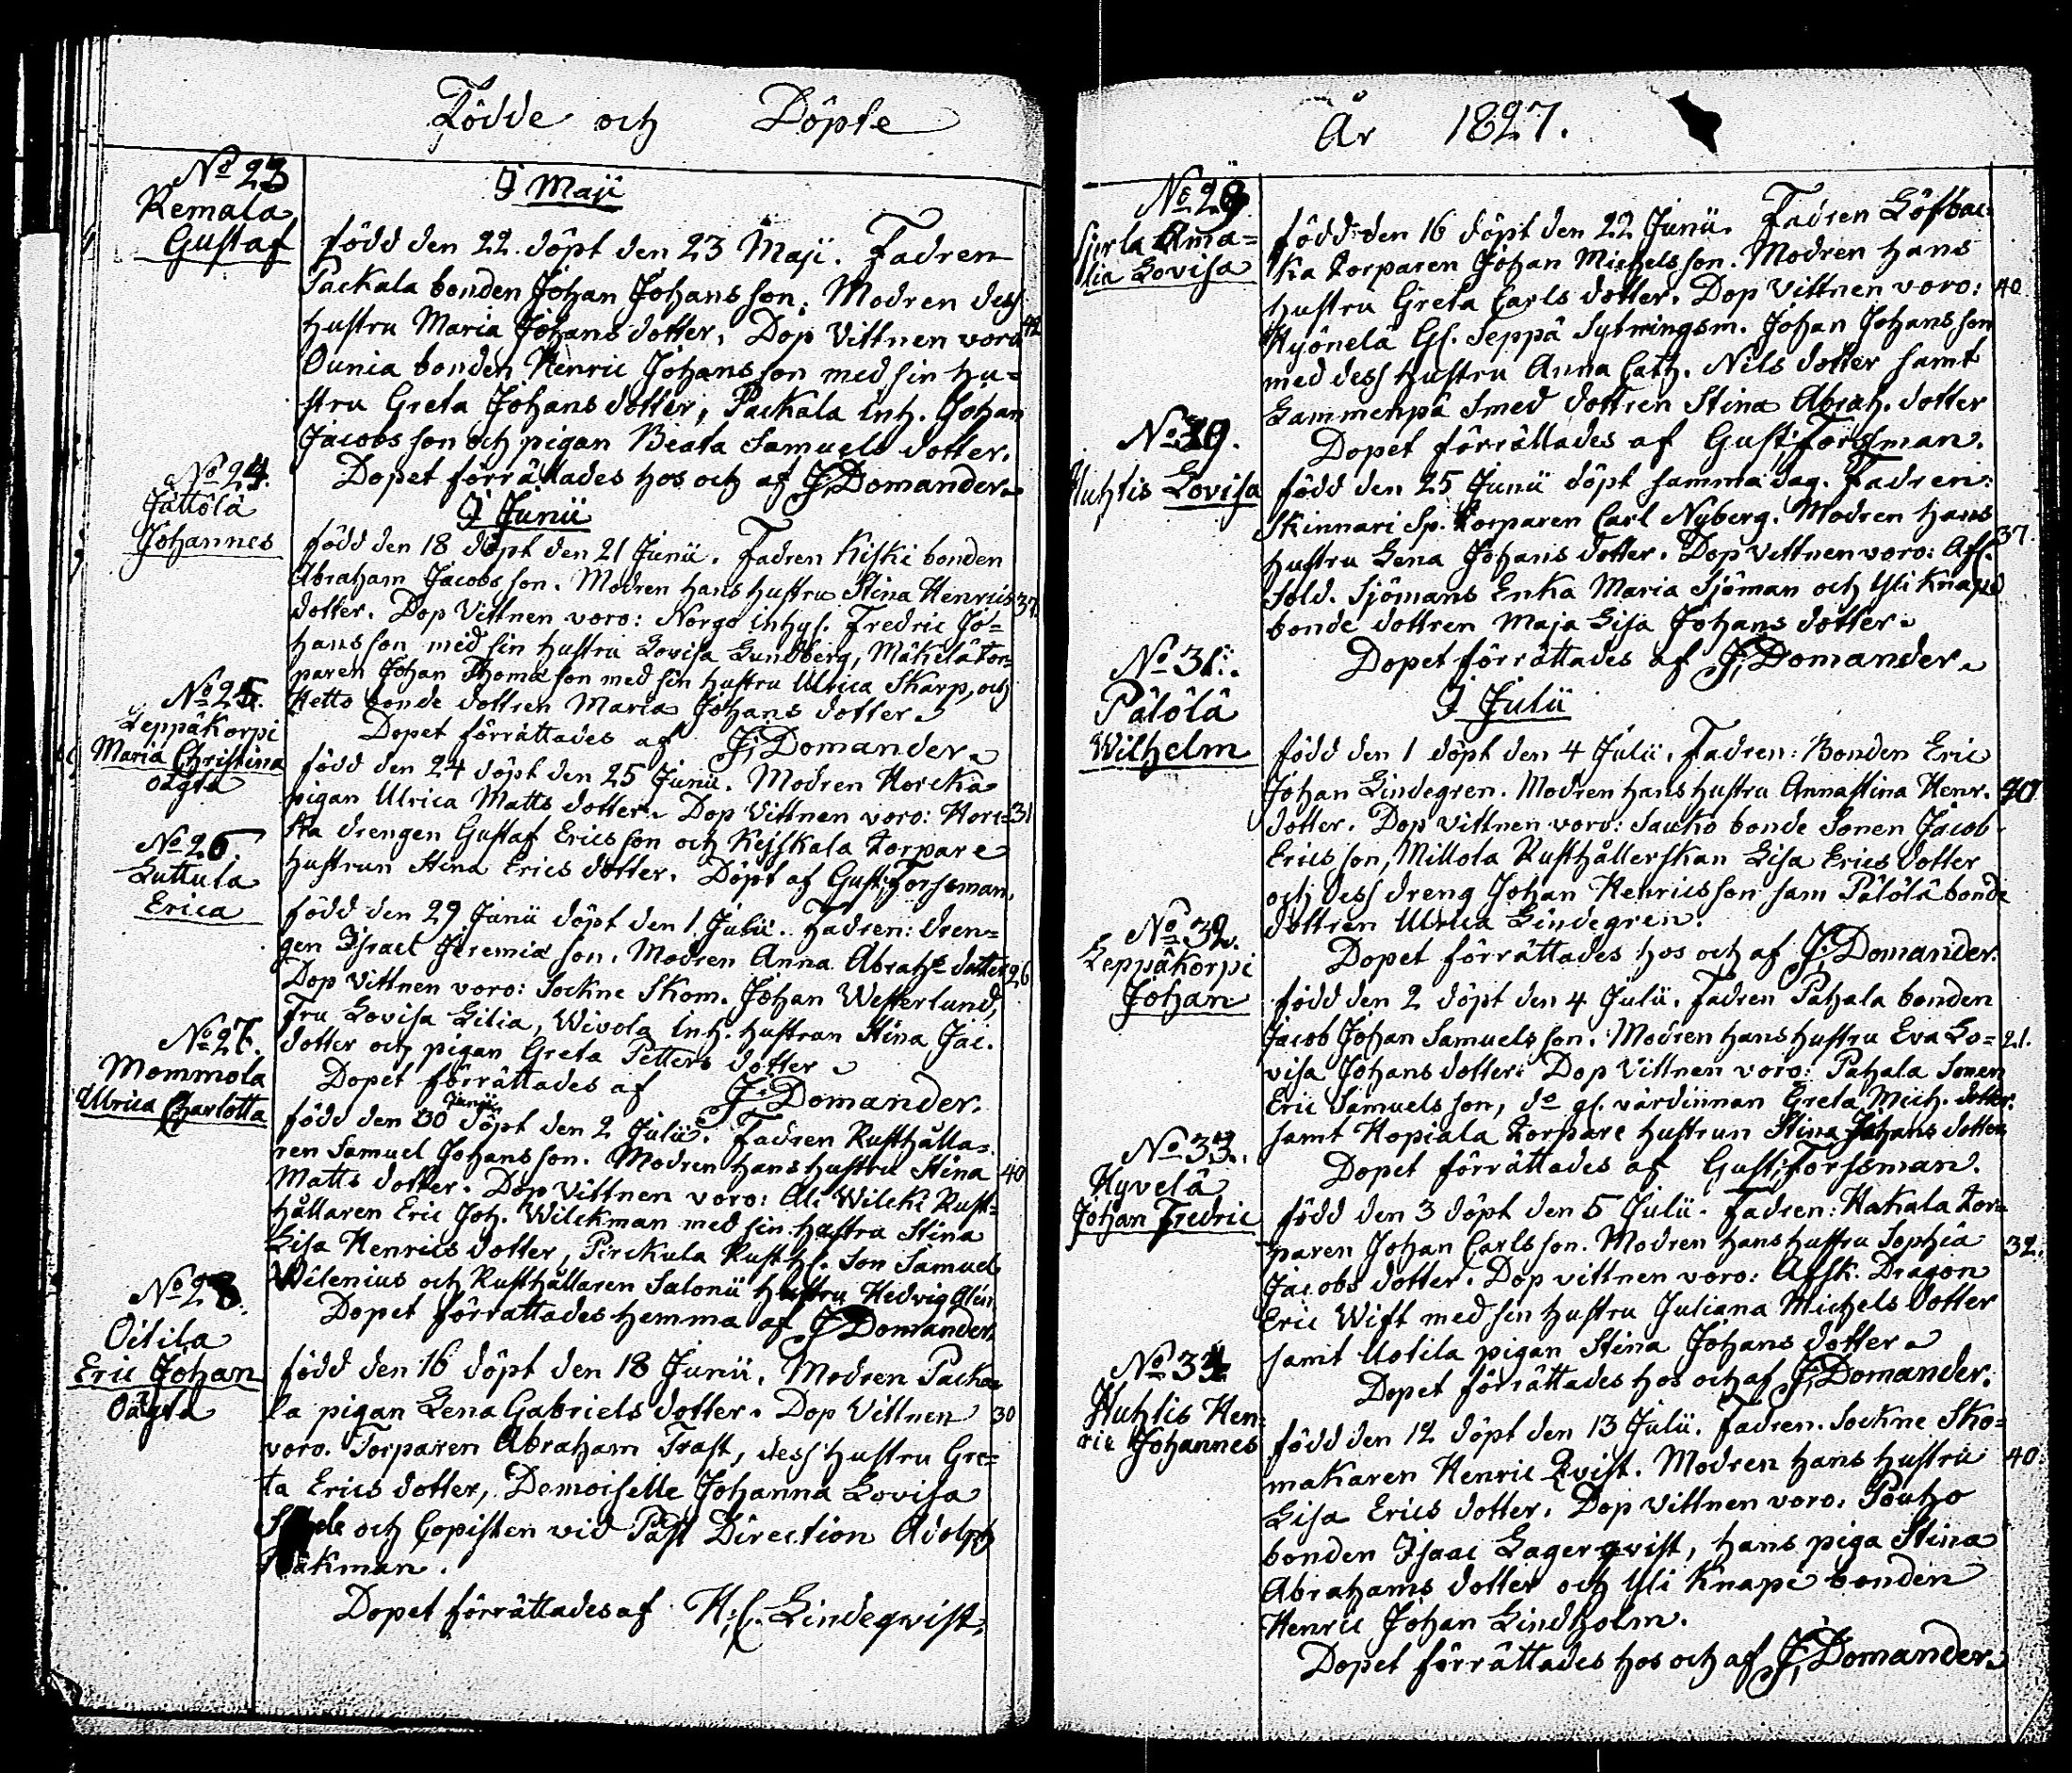 Födde och Döpte
No 23
Remala
Gustaf
I Maji
född den 22. döpt den 23 Maji. Fadren
Packala bonden Johan Johansson. Modren dess
hustru Maria Johans dotter. Dop Vittnen voro
42
Ounia bonden Henric Johansson med sin hu=
stru Greta Johans dotter, Packala inh. Johan
Jacobs son och pigan Beata Samuels dotter.
Dopet förrättades hos och af J. Domander.
No 24.
Jättölä
Johannes
I Junii
född den 18 döpt den 21 Junii. Fadren Kiski bonden
Abraham Jacobs son. Modren hans hustru Stina Henrics
37
dotter. Dop Vittnen voro: Norgo inhys. Fredric Jo=
hansson med sin hustru Lovisa Lundberg, Mäkelä tor=
paren Johan Thomæ son med sin hustru Ulrica Skarp, och
Hetto bonde dottren Maria Johans dotter.
Dopet förrättades af J. Domander.
No 25.
Leppäkorpi
Maria Christina
oägta
född den 24 döpt den 25 Junii. Modren Horcka
pigan Ulrica Matts dotter. Dop Vittnen voro: Horc=
31
ka drengen Gustaf Ericsson och Kejskala torpare
hustrun Stina Erics dotter. Döpt af Gust. Forssman.
No 26.
Luttula
Erica
född den 29 Junii döpt den 1. Julii. Fadren: dren=
gen Israel Jeremiæ son. Modren Anna Abrahs dotter
26
Dop Vittnen voro: Sockne Skom. Johan Westerlund,
Fru Lovisa Lilia, Wivola inh. hustrun Stina Jac.
dotter och pigan Greta Petters dotter
Dopet förrättades af J. Domander.
No 27.
Mommola
Ulrica Charlotta
född den 30 Junii döpt den 2 Julii. Fadren Rusthålla=
ren Samuel Johansson. Modren hans hustru Stina
40
Matts dotter. Dop Vittnen voro: Ali Wilcki Rust=
hållaren Eric Joh. Wilckman med sin hustru Stina
Lisa Henrics dotter, Pirckula Rusth. Son Samuel
Wilenius och Rusthållaren Salonii hustru Hedvig
Dopet förrättades hemma af J. Domander.
No 28.
Oitila
Eric Johan
Oägta
född den 16 döpt den 18 Junii. Modren Packa
la pigan Lena Gabriels dotter. Dop Vittnen
30
voro. Torparen Abraham Trast, dess hustru Gre=
ta Erics dotter, Demoiselle Johanna Lovisa
och Copisten vid Påst Direction Adolph
Dopet förrättades af H. C. Lindeqvist.
År 1827.
No 29
Sjerla Ama=
lia Lovisa
född den 16 döpt den 22 Junii. Fadren Löfbac
ka torparen Johan Michelsson. Modren hans
hustru Greta Carls dotter. Dop Vittnen voro:
40
Hyönelä Gl. Seppä Sytningsm. Johan Johansson
med dess hustru Anna Cath. Nils dotter samt
Lammenpä Smed dottren Stina Abrah. dotter
Dopet förrättades af Gust. Forssman.
No 30.
Huhtis Lovisa
född den 25 Junii döpt samma dag. Fadren:
Skinnari Sp. torparen Carl Nyberg. Modren hans
37.
hustru Lena Johans dotter. Dop Vittnen voro: Afl.
Sold. Sjömans Enka Maria Sjöman och Yli Knape
bonde dottren Maja Lisa Johans dotter.
Dopet förrättades af J. Domander.
No 31.
Pälölä
Wilhelm
I Julii
född den 1 döpt den 4 Julii. Fadren: Bonden Eric
Johan Lindegren. Modren hans hustru Annastina Henr.
40
dotter. Dop Vittnen voro: Sauko bonde Sonen Jacob
Ericsson, Millola Rusthållerskan Lisa Erics dotter
och dess dreng Johan Henricsson sam Pälölä bonde
dottren Ulrica Lindegren.
Dopet förrättades hos och af J. Domander.
No 32.
Leppäkorpi
Johan
född den 2 döpt den 4 Julii. Fadren Pahala bonden
Jacob Johan Samuelsson. Modren hans hustru Eva Lo=
21.
visa Johans dotter. Dop Vittnen voro: Pahala Sonen
Eric Samuels son, do gl. värdinnan Greta Mich. dotter.
samt Hopiala torpare hustrun Stina Johans dotter
Dopet förrättades af Gust. Forssman.
No 33.
Hyvelä
Johan Fredric
född den 3 döpt den 5 Julii. Fadren: Hakala tor=
paren Johan Carlsson. Modren hans hustru Sophia
32.
Jacobs dotter. Dop vittnen voro: Afsk. Dragon
Eric Wift med sin hustru Juliana Michels dotter
samt Uotila pigan Stina Johans dotter
Dopet förrättades hos och af J. Domander.
No 34
Huhtis Hen=
ric Johannes
född den 12 döpt den 13 Julii. Fadren. Sockne Sko=
makaren Henric Qvist. Modren hans hustru
40.
Lisa Erics dotter. Dop vittnen voro. Pouho
bonden Isaac Lagerqvist, hans piga Stina
Abrahams dotter och Yli Knape bonden
Henric Johan Lindholm.
Dopet förrättades hos och af J. Domander.